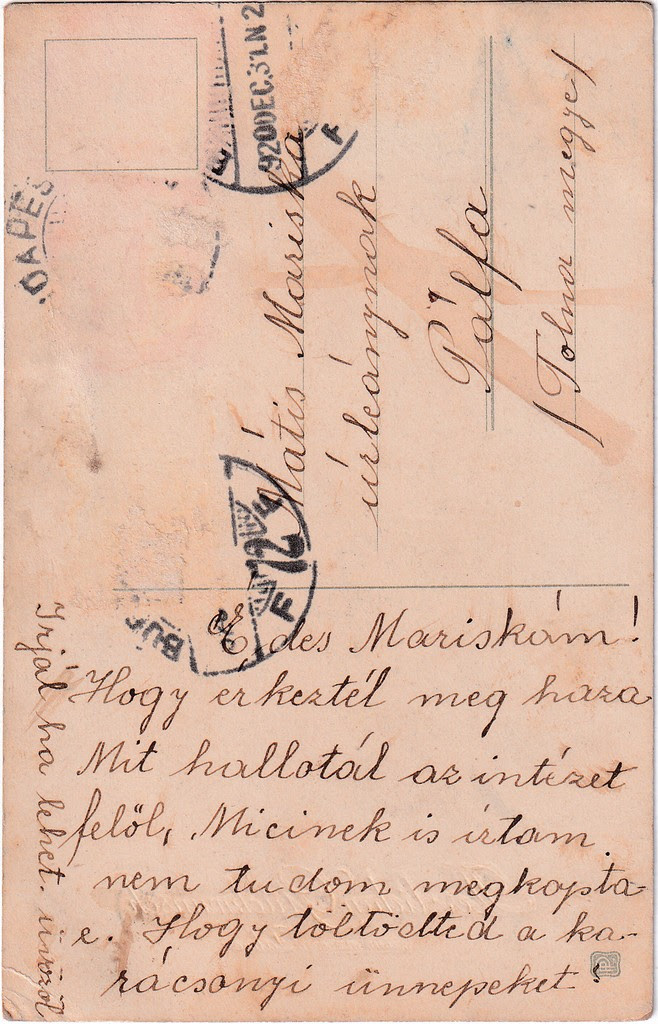 DAPES
920 DEC. 31. N 2
F
Mátis Mariska
úrleánynak
Pálfa
/Tolna megye/
12
F
BU
Édes Mariskám!
Hogy erkeztél meg haza
Mit hallotál az intézet
felöl, Micinek is írtam
nem tudom megkapta-
e. Hogy töltödted a ka-
rácsonyi ünnepeket!
Irjál ha lehet.